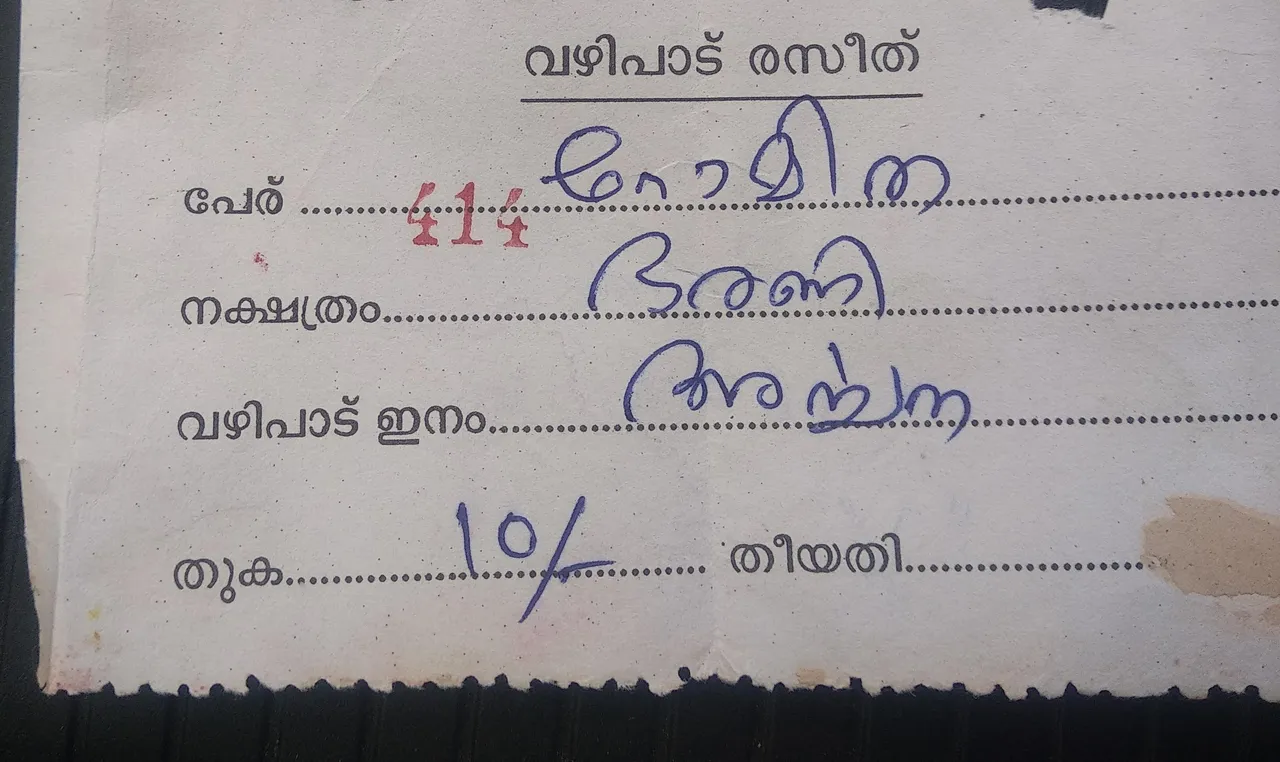 വഴിപാട് രസീത്
പേര് ഗോമിത
414
നക്ഷത്രം ഭരണി
വഴിപാട് ഇനം അർച്ചന
തുക 10/- തീയതി